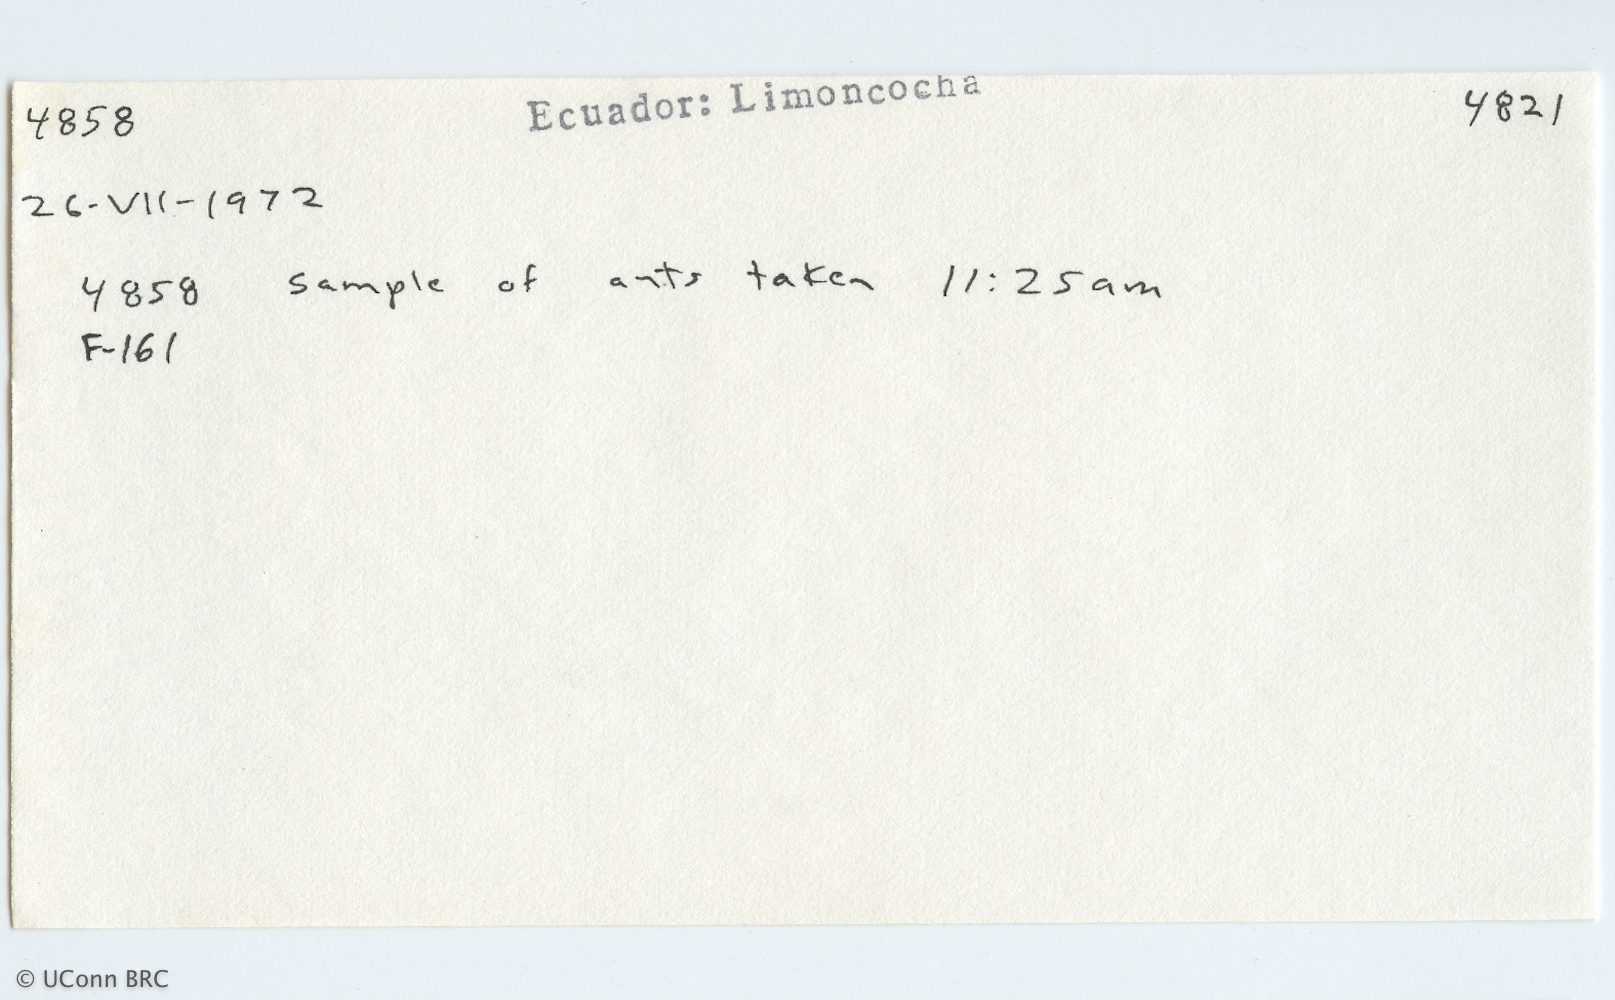 4858 Ecuador: Limoncocha 4821
26-VII-1972
4858 sample of ants taken 11:25am
F-161
© UConn BRC